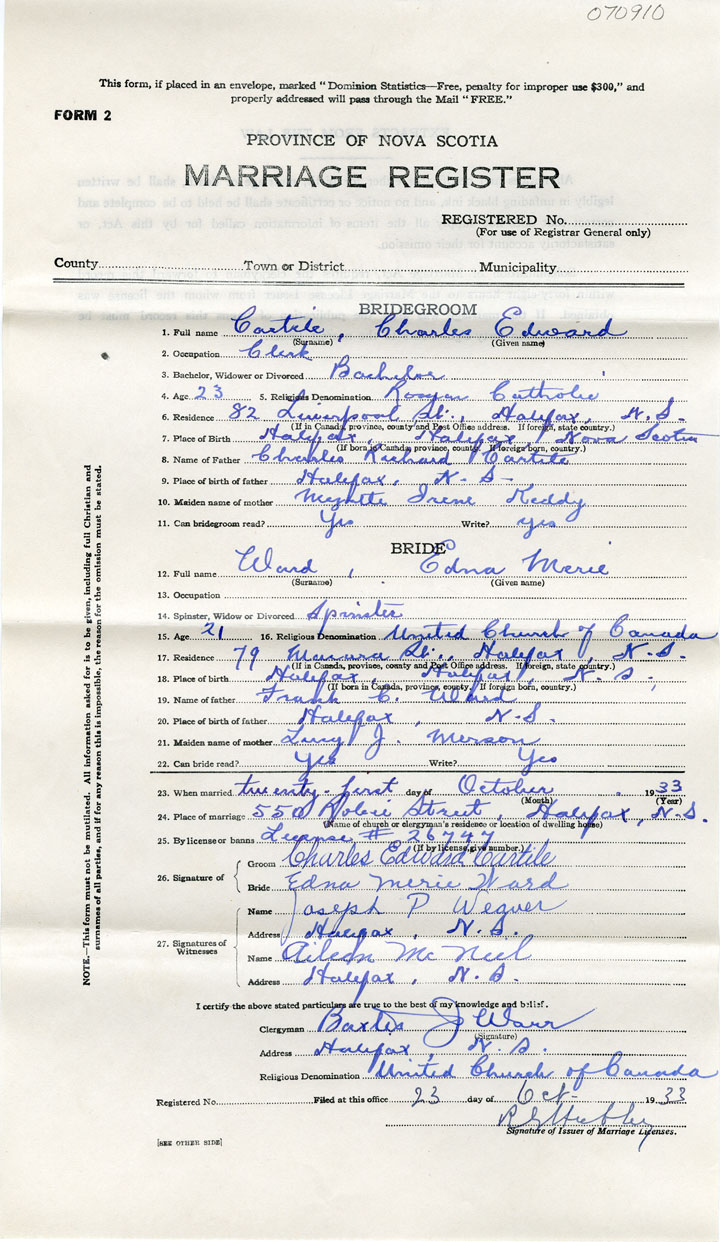 070910
This form, if placed in an envelope, marked "Dominion Statistics—Free, penalty for improper use $300," and
properly addressed will pass through the Mail "FREE."
FORM 2
PROVINCE OF NOVA SCOTIA
MARRIAGE REGISTER
REGISTERED No.
(For use of Registrar General only)
County Town or District Municipality
BRIDEGROOM
1. Full name Castile, Charles Edward
(Surname) (Given name)
2. Occupation Clerk
3. Bachelor, Widower or Divorced Bachelor
4. Age 23 5. Religious Denomination Roman Catholic
6. Residence 82 Liverpool St., Halifax, N.S.
(If in Canada, province, county and Post Office address. If foreign, state country.)
7. Place of Birth Halifax, Halifax, Nova Scotia
(If born in Canada, province, county. If foreign born, country.)
8. Name of Father Charles Richard Castile
9. Place of birth of father Halifax, N.S.
10. Maiden name of mother Irene Keddy
11. Can bridegroom read? Yes Write? yes
BRIDE
12. Full name Ward, Edna Merie
(Surname) (Given name)
13. Occupation
14. Spinster, Widow or Divorced Spinster
15. Age 21 16. Religious Denomination United Church of Canada
17. Residence 79 St., Halifax, N.S.
(If in Canada, province, county and Post Office address. If foreign, state country.)
18. Place of birth Halifax, Halifax, N.S.
(If born in Canada, province, county. If foreign born, country.)
19. Name of father Frank C. Ward
20. Place of birth of father Halifax, N.S.
21. Maiden name of mother Lucy J. Merson
22. Can bride read? Yes Write? Yes
23. When married twenty-first day of October 1933
(Month) (Year)
24. Place of marriage 550 Robie Street, Halifax, N.S.
(Name of church or clergyman's residence or location of dwelling house)
25. By license or banns License # 26747
(If by license, give number.)
26. Signature of
Groom Charles Edward Castile
Bride Edna Merie Ward
27. Signatures of Witnesses
Name Joseph P Weaver
Address Halifax, N.S.
Name Aileen McNeil
Address Halifax, N.S.
I certify the above stated particulars are true to the best of my knowledge and belief.
Clergyman Baxter J Warr
(Signature)
Address Halifax, N.S.
Religious Denomination United Church of Canada
Registered No. Filed at this office 23 day of Oct 1933
Signature of Issuer of Marriage Licenses.
[SEE OTHER SIDE]
NOTE.—This form must not be mutilated. All information asked for is to be given, including full Christian and
surnames of all parties, and if for any reason this is impossible, the reason for the omission must be stated.